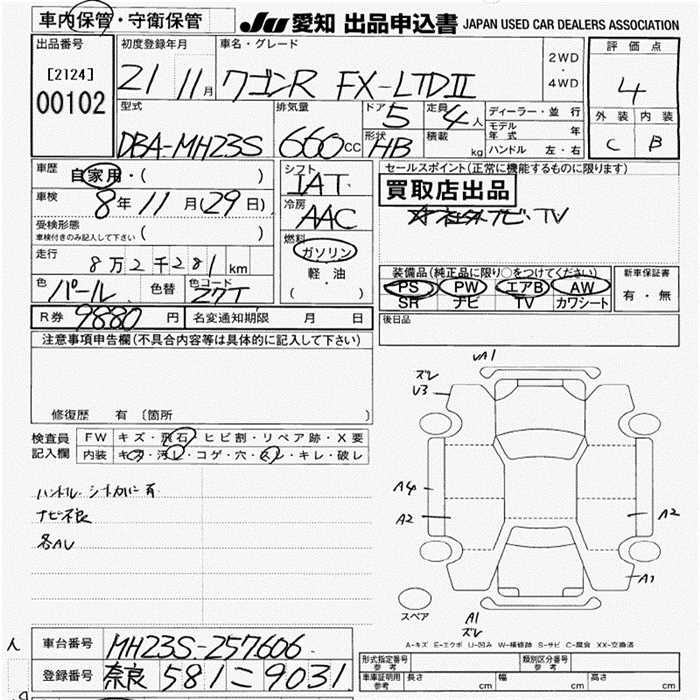 車内保管・守衛保管
JU 愛知 出品申込書 JAPAN USED CAR DEALERS ASSOCIATION
出品番号
[2124]
00102
初度登録年月
21 11月
車名・グレード
ワゴンR FX-LTDⅡ
2WD
・
4WD
評価点
4
外装 内装
C B
型式
DBA-MH23S
排気量
660cc
ドア 5
形状 HB
定員 4人
積載 kg
ディーラー・並行
モデル年式 年
ハンドル 左・右
車歴
自家用・( )
車検
8年11月(29日)
受検形態
車検付きのみ記入して下さい ( )
走行
8万2千281km
色 パール 色替 色コード Z7T
シフト
IAT
冷房
AAC
燃料
ガソリン
軽・油
( )
セールスポイント(正常に機能するものに限ります)
買取店出品
社外ナビ・TV
装備品(純正品に限り○をつけてください)
PS PW エアB AW
SR ナビ TV カワシート
新車保証書
有・無
R券 9880円 名変通知期限 月 日
後日品
注意事項申告欄(不具合内容等は具体的に記入して下さい)
修復歴 有〔箇所 〕
検査員記入欄
FW キズ・飛石・ヒビ割・リペア跡・X要
内装 キズ・汚レ・コゲ・穴・スレ・キレ・破レ
ナビ不良
各AU
A1
ズレ
V3
A4
A2
A2
A1
スペア
A1
ズレ
A-キズ E-エクボ U-凹み W-補修跡 S-サビ C-腐食 XX-交換済
車台番号 MH23S-257606
登録番号 奈良 581 こ 9031
形式指定番号 参考 類別区分番号 参考
車庫証明用 参考 長さ cm 幅 cm 高さ cm